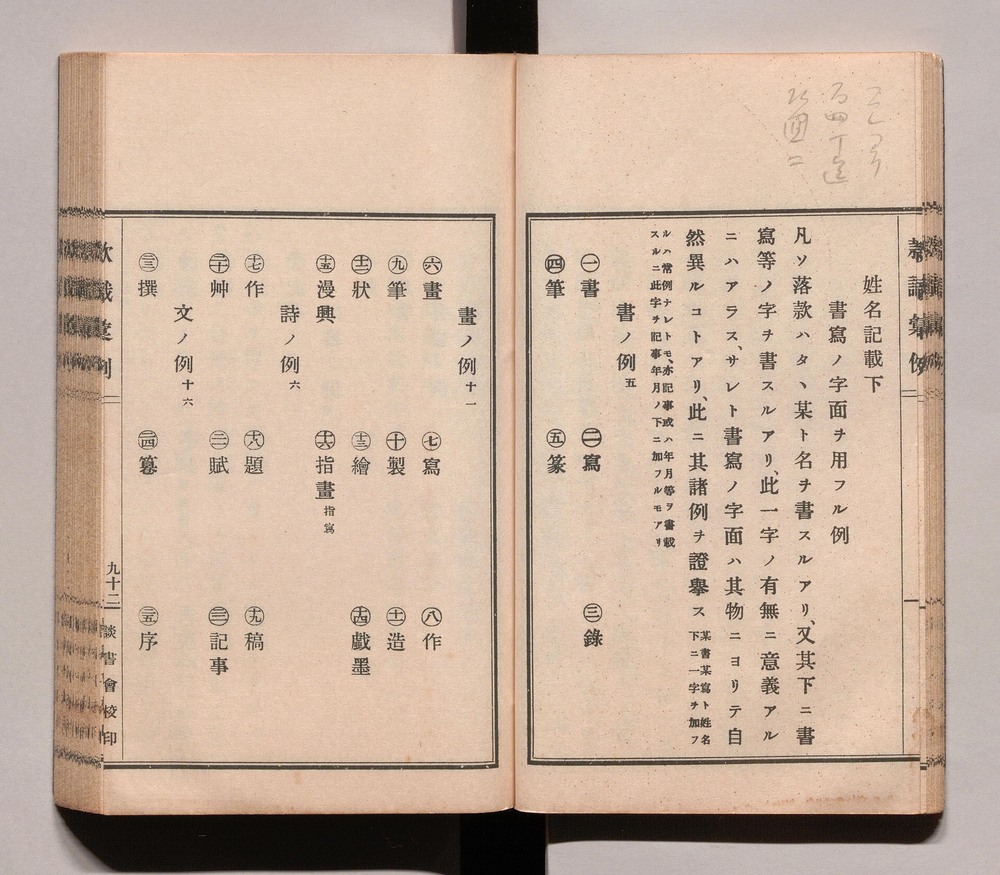 姓名記載下
書寫ノ字面ヲ用フル例
凡ソ落款ハタヽ某ト名ヲ書スルアリ、又其下ニ書
寫等ノ字ヲ書スルアリ、此一字ノ有無ニ意義アル
ニハアラス、サレト書寫ノ字面ハ其物ニヨリテ自
然異ルコトアリ、此ニ其諸例ヲ證擧ス某書某寫ト姓名
下ニ一字ヲ加フ
ルハ常例ナレトモ、亦記事或ハ年月等ヲ書載
スルニ此字ヲ記事年月ノ下ニ加フルモアリ
書ノ例五
㊀書 ㊁寫 ㊂錄
㊃筆 ㊄篆
畫ノ例十一
㊅畫 ㊆寫 ㊇作
㊈筆 ㊉製 十一造
十二狀 十三繪 十四戲墨
十五漫興 十六指畫指寫
詩ノ例六
十七作 十八題 十九稿
二十艸 二一賦 二二記事
文ノ例十六
二三撰 二四篹 二五序
款識彙例
九十二
談書會校印